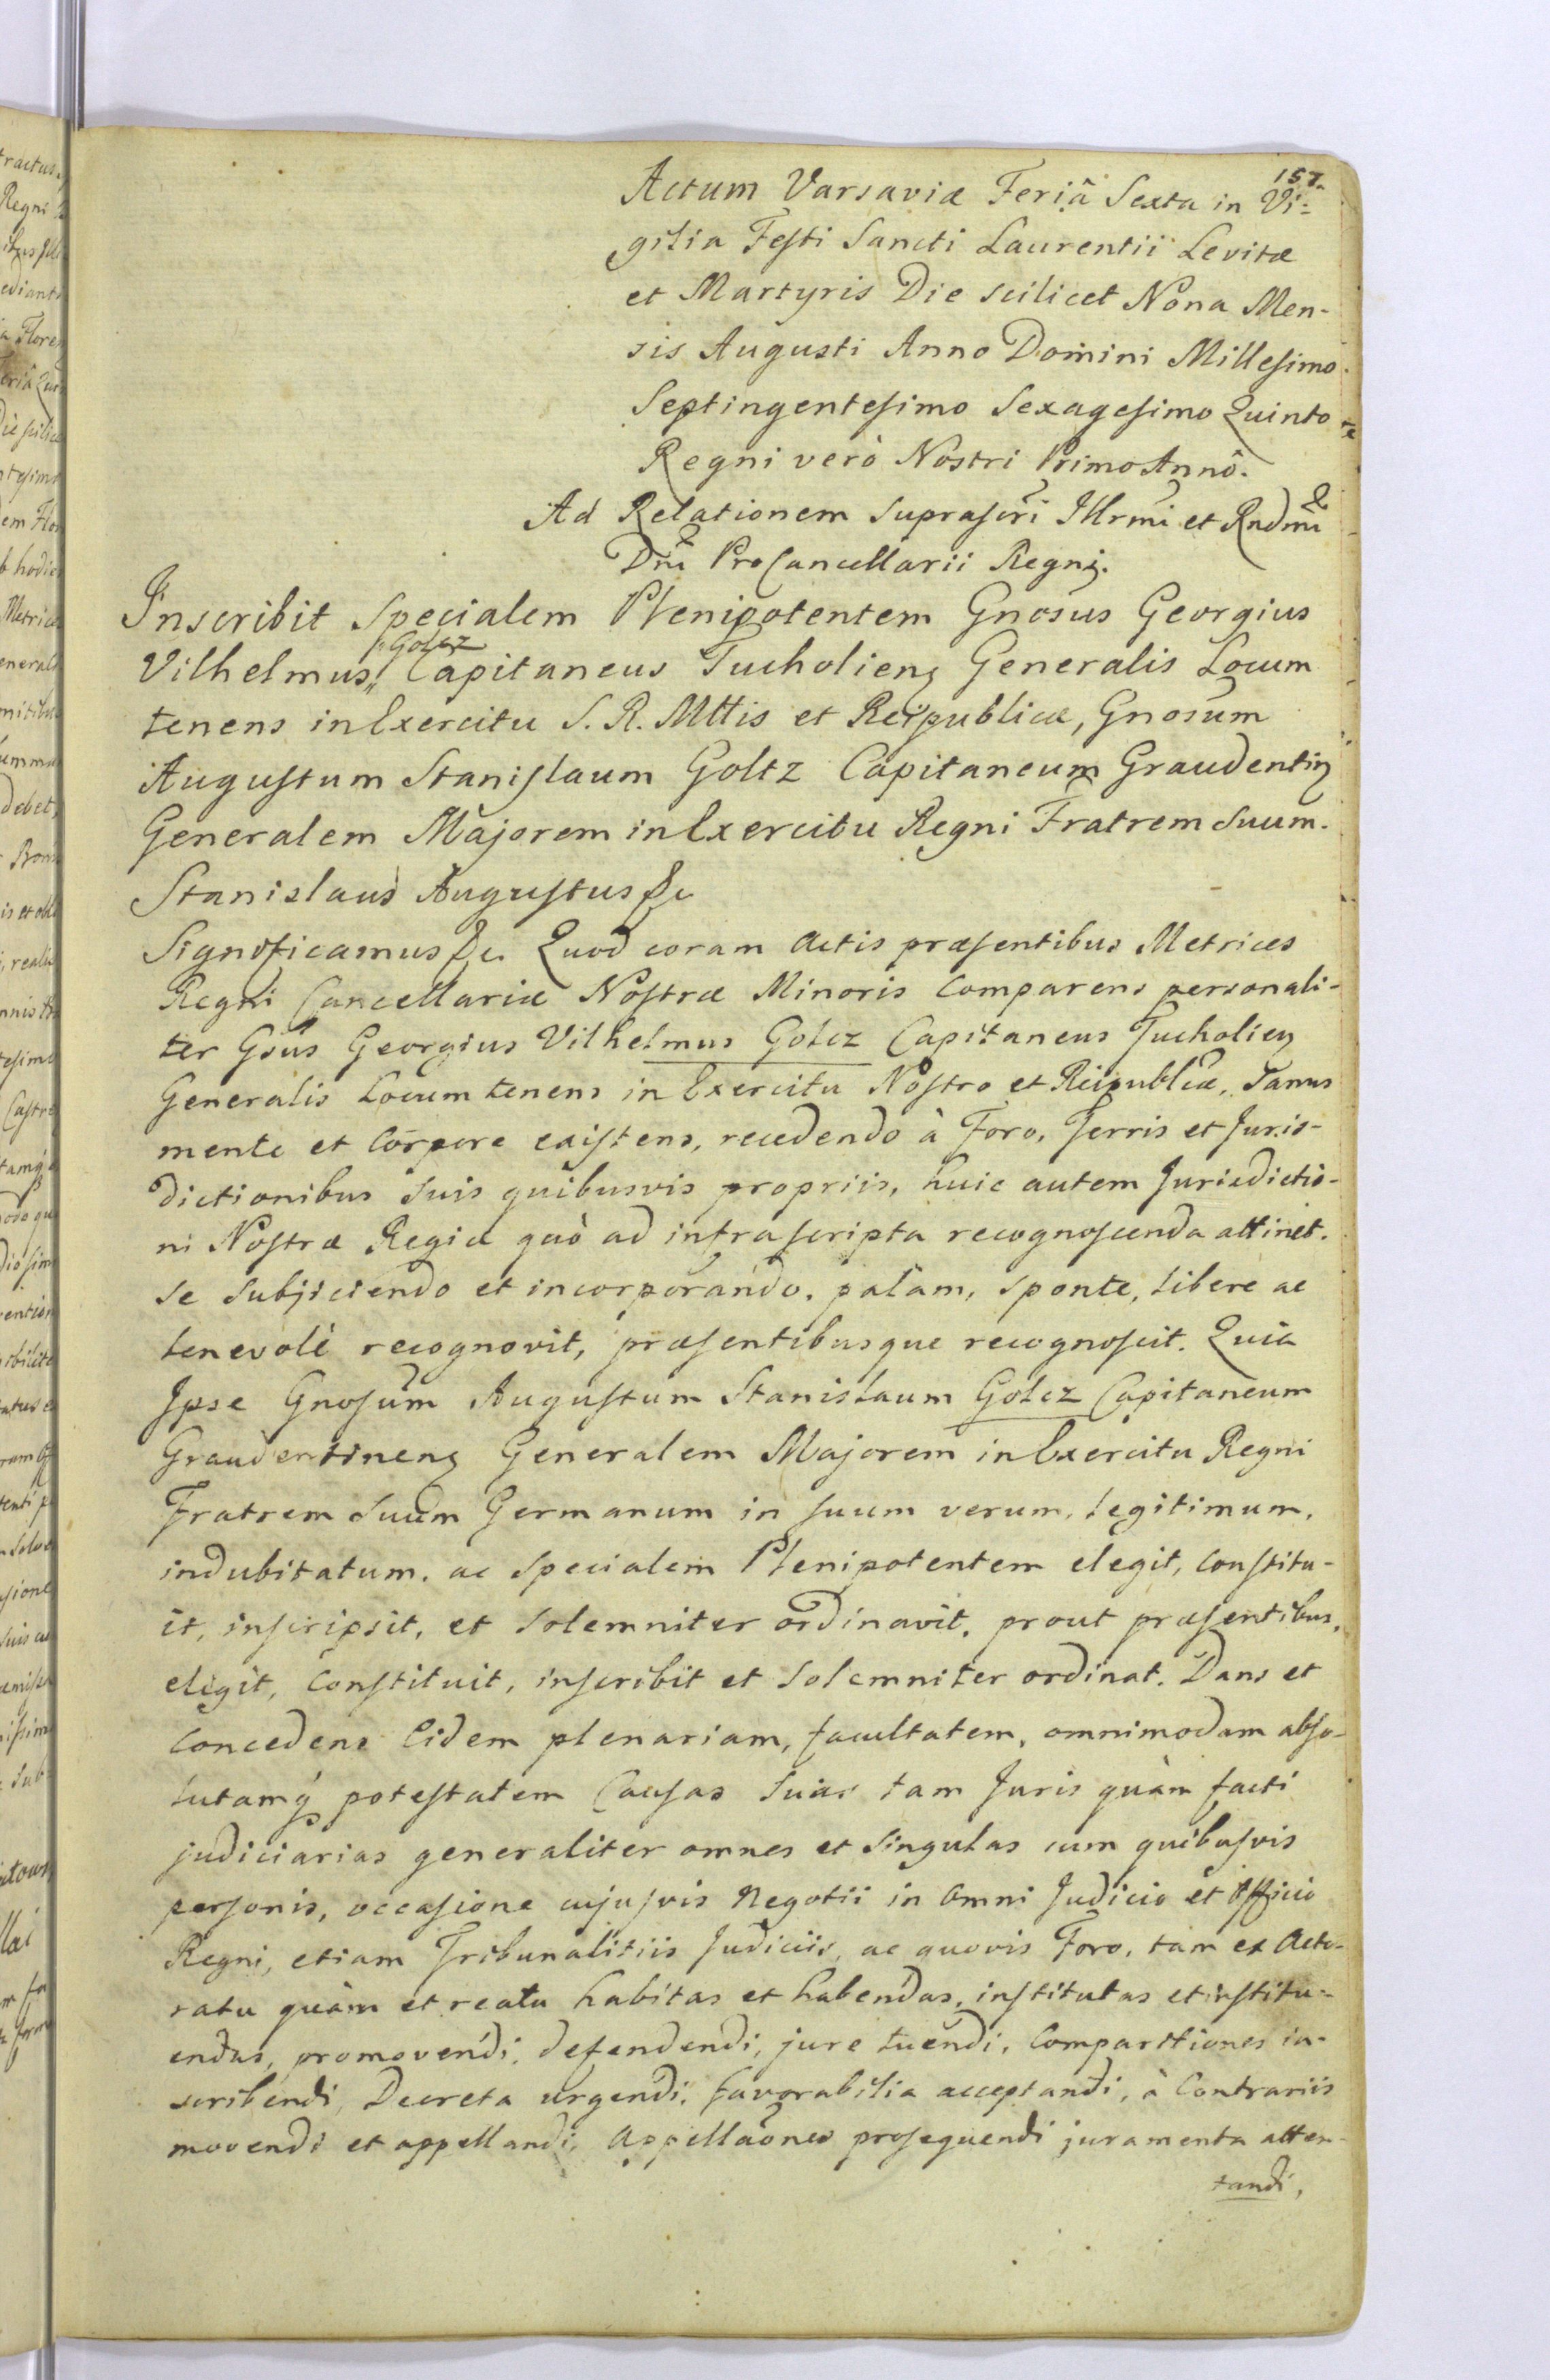 157.
Actum Varsaviæ Feriâ Sexta in Vi-
gilia Festi Sancti Laurentii Levitæ
et Martyris Die scilicet Nona Men-
sis Augusti Anno Domini Millesimo
Septingentesimo Sexagesimo Quinto
Regni verò Nostri Primo Annô.
Ad Relationem suprascri Illrmi et Rndmi
Dni ProCancellarii Regni.
Inscribit Specialem Plenipotentem Gnosus Georgius
Golcz
Vilhelmus, Capitaneus Tucholiens Generalis Locum
tenens in Exercitu S. R. Mttis et Reipublicæ, Gnosum
Augustum Stanislaum Goltz Capitaneum Graudentin
Generalem Majorem in Exercitu Regni Fratrem Suum.
Stanislaus Augustus &c
Significamus &c. Quod coram Actis præsentibus Metrices
Regni Cancellariæ Nostræ Minoris Comparens personali-
ter Gsus Georgius Vilhelmus Golcz Capitaneus Tucholien
Generalis Locum tenens in Exercitu Nostro et Reipublicæ, Sanus
mente et Corpore existens, recedendo à Foro, Terris et Juris-
dictionibus Suis quibusvis propriis, huic autem Jurisdictio-
ni Nostræ Regiæ quò ad infrascripta recognoscenda attinet.
se Subjiciendo et incorporando, palam, sponte, libere ac
benevole recognovit, præsentibusque recognoscit. Quia
Ipse Gnosum Augustum Stanislaum Golcz Capitaneum
Graudentinens Generalem Majorem in Exercitu Regni
Fratrem Suum Germanum in suum verum, legitimum,
indubitatum, ac Specialem Plenipotentem elegit, Constitu-
it, inscripsit, et Solemniter ordinavit, prout præsentibus,
elegit, Constituit, inscribit et Solemniter ordinat. Dans et
Concedens Eidem plenariam, facultatem, omnimodam abso-
lutamq potestatem Causas Suas tam Juris quàm facti
judiciarias generaliter omnes et Singulas cum quibusvis
personis, occasione cujusvis Negotii in Omni Judicio et Officio
Regni, etiam Tribunalitiis Judiciis, ac quovis Foro, tam ex Acto-
ratu quàm et reatu habitas et habendas, institutas et institu-
endas, promovendi, defendendi, jure tuendi, Comparitiones in-
scribendi, Decreta urgendi, favorabilia acceptandi, à Contrariis
movendi et appellandi, Appellaones prosequendi juramenta atten-
tandi,